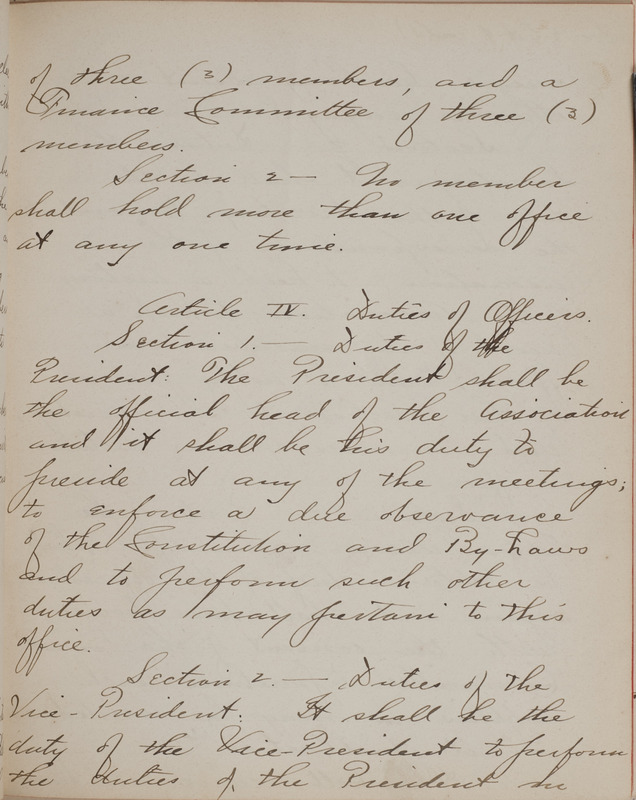 of three (3) members, and a
Finance Committee of three (3)
members.
Section 2— No member
shall hold more than one office
at any one time.
Article IV. Duties of Officers.
Section 1.— Duties of the
President: The President shall be
the official head of the Association
and it shall be his duty to
preside at any of the meetings;
to enforce a due observance
of the Constitution and By-Laws
and to perform such other
duties as may pertain to this
office.
Section 2.— Duties of the
Vice-President: It shall be the
duty of the Vice-President to perform
the duties of the President in